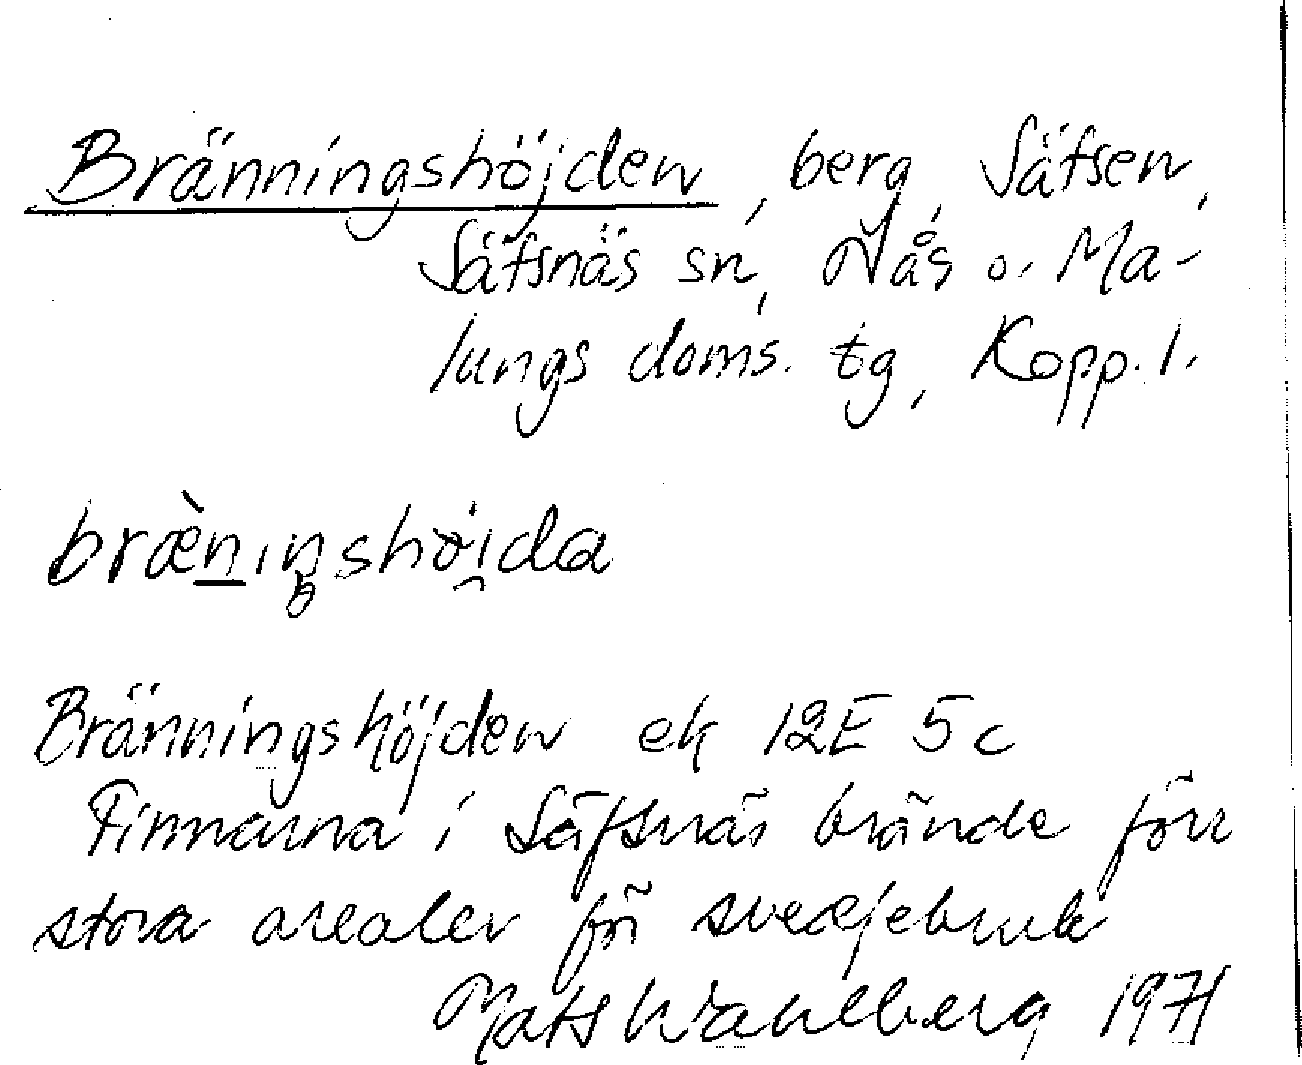 Bränningshöjden, berg, Säfsen,
Säfsnäs sn, Nås o. Ma-
lungs doms. tg, Kopp. l.
bræ̀n̲ıŋshöi̯da
Bränningshöjden ek 12E 5c
Finnarna i Säfsnäs brände förr
stora arealer för svedjebruk
Mats Wahlberg 1971